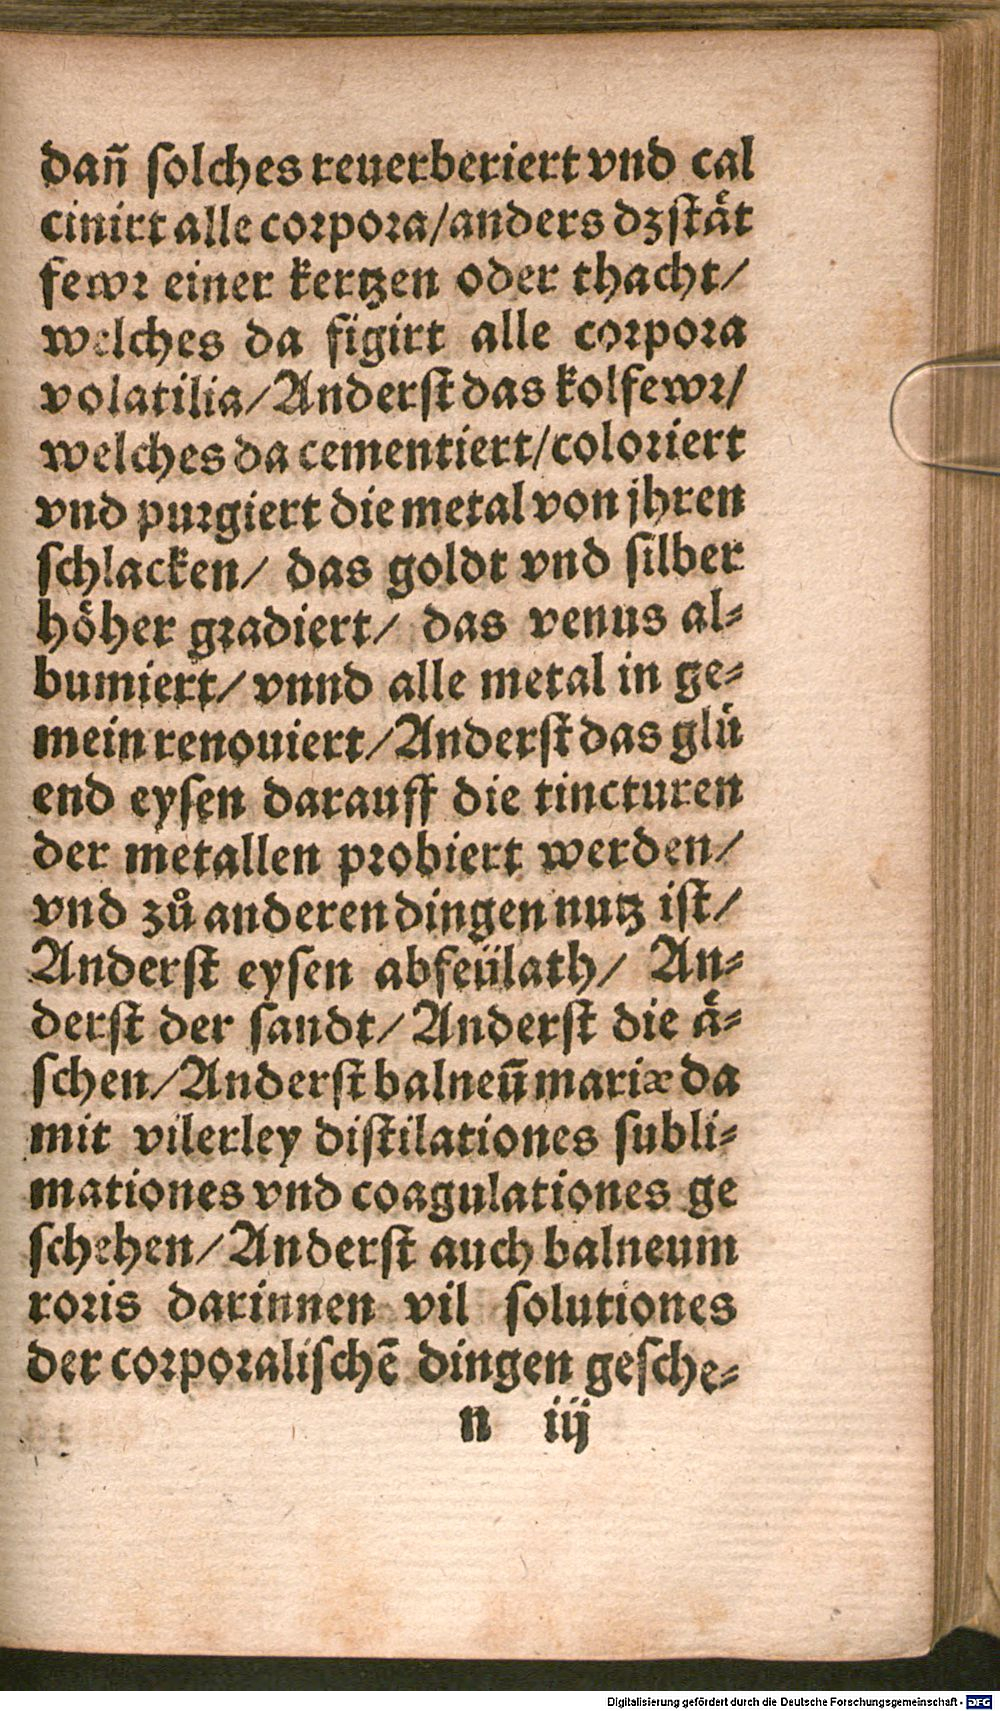 dañ solches reuerberiert vnd cal
cinirt alle corpora/anders dz stät
fewr einer kertzen oder thacht/
welches da figirt alle corpora
volatilia/Anderst das kolfewr/
welches da cementiert/coloriert
vnd purgiert die metal von jhren
schlacken/ das goldt vnd silber
höher gradiert/ das venus al⸗
bumiert/ vnnd alle metal in ge⸗
mein renouiert/Anderst das glü
end eysen darauff die tincturen
der metallen probiert werden/
vnd zů anderen dingen nutz ist/
Anderst eysen abfeülath/ An⸗
derst der sandt/ Anderst die ä⸗
schen/Anderst balneū mariæ da
mit vilerley distilationes subli⸗
mationes vnd coagulationes ge
schehen/Anderst auch balneum
roris darinnen vil solutiones
der corporalischē dingen gesche⸗
n iij
Digitalisierung gefördert durch die Deutsche Forschungsgemeinschaft - DFG